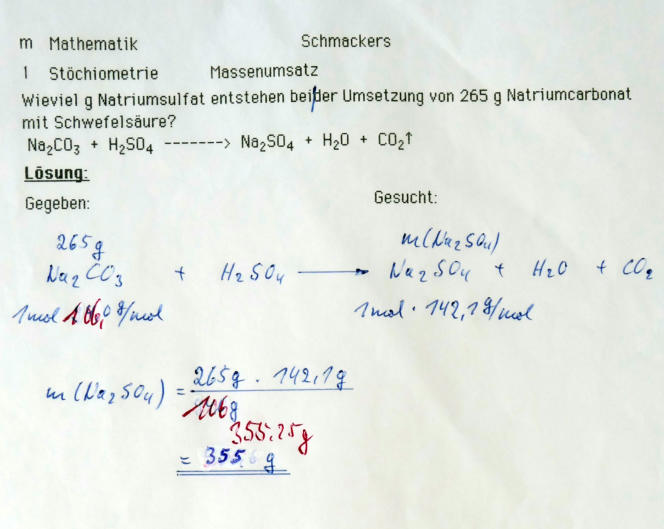 m Mathematik Schmackers
1 Stöchiometrie Massenumsatz
Wieviel g Natriumsulfat entstehen bei/der Umsetzung von 265 g Natriumcarbonat
mit Schwefelsäure?
Na₂CO₃ + H₂SO₄ -------> Na₂SO₄ + H₂O + CO₂↑
Lösung:
Gegeben: Gesucht:
265g m(Na₂SO₄)
Na₂CO₃ + H₂SO₄ → Na₂SO₄ + H₂O + CO₂
1mol 106,0 g/mol 1mol · 142,1 g/mol
m(Na₂SO₄) = 265g · 142,1g
106g
355,25g
= 355 g